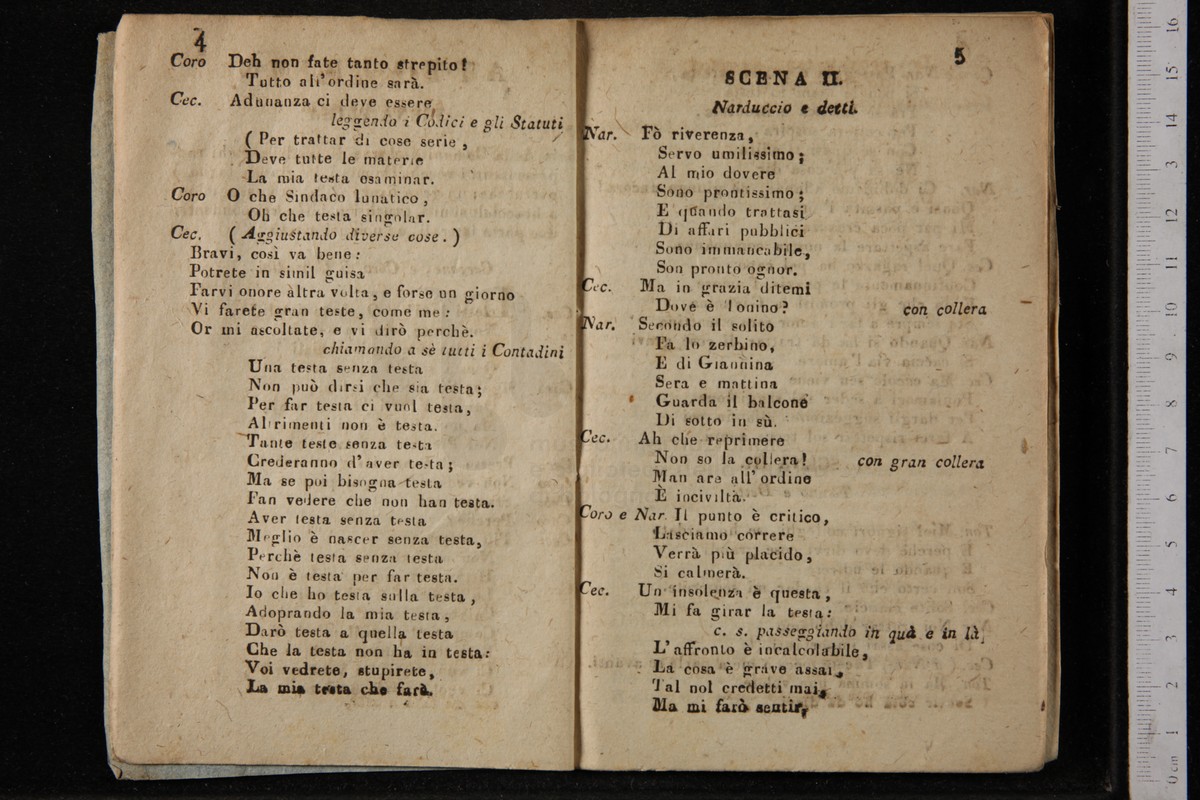 4
Coro Deh non fate tanto strepito!
Tutto all'ordine sarà.
Cec. Adunanza ci deve essere
leggendo i Codici e gli Statuti
( Per trattar di cose serie ,
Deve tutte le materie
La mia testa esaminar.
Coro O che Sindaco lunatico ,
Oh che testa singolar.
Cec. ( Aggiustando diverse cose. )
Bravi, così va bene:
Potrete in simil guisa
Farvi onore altra volta, e forse un giorno
Vi farete gran teste, come me:
Or mi ascoltate, e vi dirò perchè.
chiamando a sè tutti i Contadini
Una testa senza testa
Non può dirsi che sia testa;
Per far testa ci vuol testa,
Altrimenti non è testa.
Tante teste senza testa
Crederanno d'aver testa;
Ma se poi bisogna testa
Fan vedere che non han testa.
Aver testa senza testa
Meglio è nascer senza testa,
Perchè testa senza testa
Non è testa per far testa.
Io che ho testa sulla testa,
Adoprando la mia testa,
Darò testa a quella testa
Che la testa non ha in testa:
Voi vedrete, stupirete,
La mia testa che farà.
5
SCENA II.
Narduccio e detti.
Nar. Fò riverenza,
Servo umilissimo;
Al mio dovere
Sono prontissimo;
E quando trattasi
Di affari pubblici
Sono immancabile,
Son pronto ognor.
Cec. Ma in grazia ditemi
Dove è Tonino? con collera
Nar. Secondo il solito
Fa lo zerbino,
E di Giannina
Sera e mattina
Guarda il balcone
Di sotto in sù.
Cec. Ah che reprimere
Non so la collera! con gran collera
Man are all' ordine
È inciviltà.
Coro e Nar. Il punto è critico,
Lasciamo correre
Verrà più placido,
Si calmerà.
Cec. Un insolenza è questa,
Mi fa girar la testa:
c. s. passeggiando in quà e in là,
L' affronto è incalcolabile,
La cosa è grave assai,
Tal nol credetti mai,
Ma mi farò sentir,